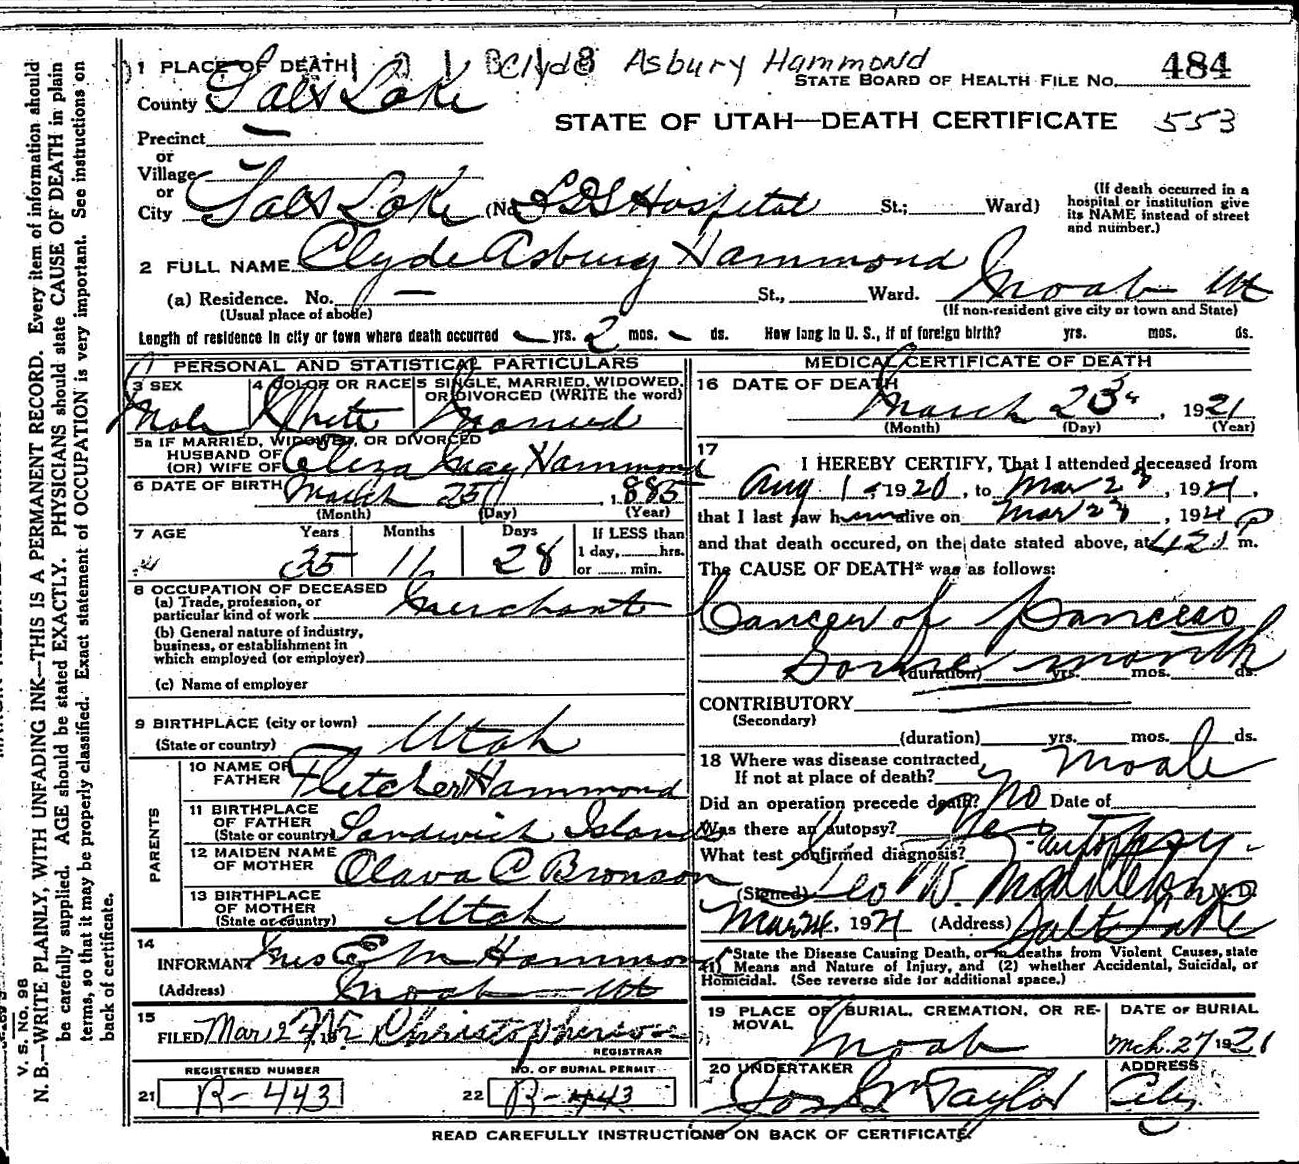 1 PLACE OF DEATH Clyde Asbury Hammond
STATE BOARD OF HEALTH FILE NO. 484
County Salt Lake
STATE OF UTAH—DEATH CERTIFICATE 553
Precinct
or
Village
or
City Salt Lake (No. LDS Hospital St.; Ward)
(If death occurred in a
hospital or institution give
its NAME instead of street
and number.)
2 FULL NAME Clyde Asbury Hammond
(a) Residence. No. — St., Ward. Moab Ut
(Usual place of abode) (If non-resident give city or town and State)
Length of residence in city or town where death occurred – yrs. 2 mos. – ds. How long in U. S., if of foreign birth? yrs. mos. ds.
PERSONAL AND STATISTICAL PARTICULARS
3 SEX 4 COLOR OR RACE 5 SINGLE, MARRIED, WIDOWED,
OR DIVORCED (WRITE the word)
Male White Married
5a IF MARRIED, WIDOWED, OR DIVORCED
HUSBAND OF
(OR) WIFE OF Eliza May Hammond
6 DATE OF BIRTH March 25 1885
(Month) (Day) (Year)
7 AGE Years Months Days If LESS than
1 day, hrs.
or min.
35 11 28
8 OCCUPATION OF DECEASED
(a) Trade, profession, or
particular kind of work Merchant
(b) General nature of industry,
business, or establishment in
which employed (or employer)
(c) Name of employer
9 BIRTHPLACE (city or town)
(State or country) Utah
PARENTS
10 NAME OF
FATHER Fletcher Hammond
11 BIRTHPLACE
OF FATHER
(State or country) Sandwich Islands
12 MAIDEN NAME
OF MOTHER Olava C Bronson
13 BIRTHPLACE
OF MOTHER
(State or country) Utah
14
INFORMANT Mrs E M Hammond
(Address) Moab Ut
15
FILED Mar 24 Christopherson
REGISTRAR
REGISTERED NUMBER NO. OF BURIAL PERMIT
21 R-443 22 R-443
MEDICAL CERTIFICATE OF DEATH
16 DATE OF DEATH
March 23 , 1921
(Month) (Day) (Year)
17
I HEREBY CERTIFY, That I attended deceased from
Aug 1 - 1920, to Mar 23, 1921,
that I last saw him alive on Mar 23, 1921
and that death occured, on the date stated above, at 420 p m.
The CAUSE OF DEATH* was as follows:
Cancer of Pancreas
Some month
(duration) yrs. mos. ds.
CONTRIBUTORY
(Secondary)
(duration) yrs. mos. ds.
18 Where was disease contracted,
If not at place of death? Moab
Did an operation precede death? No Date of
Was there an autopsy? Yes
What test confirmed diagnosis? autopsy.
(Signed) Leo W. Middleton M. D.
Mar 24, 1921 (Address) Salt Lake
*State the Disease Causing Death, or in deaths from Violent Causes, state
(1) Means and Nature of Injury, and (2) whether Accidental, Suicidal, or
Homicidal. (See reverse side for additional space.)
19 PLACE OF BURIAL, CREMATION, OR RE-
MOVAL Moab
DATE OF BURIAL
Mch. 27 1921
20 UNDERTAKER Jos Wm Taylor
ADDRESS City
READ CAREFULLY INSTRUCTIONS ON BACK OF CERTIFICATE.
V. S. No. 98
N. B.—WRITE PLAINLY, WITH UNFADING INK—THIS IS A PERMANENT RECORD. Every item of information should
be carefully supplied. AGE should be stated EXACTLY. PHYSICIANS should state CAUSE OF DEATH in plain
terms, so that it may be properly classified. Exact statement of OCCUPATION is very important. See instructions on
back of certificate.